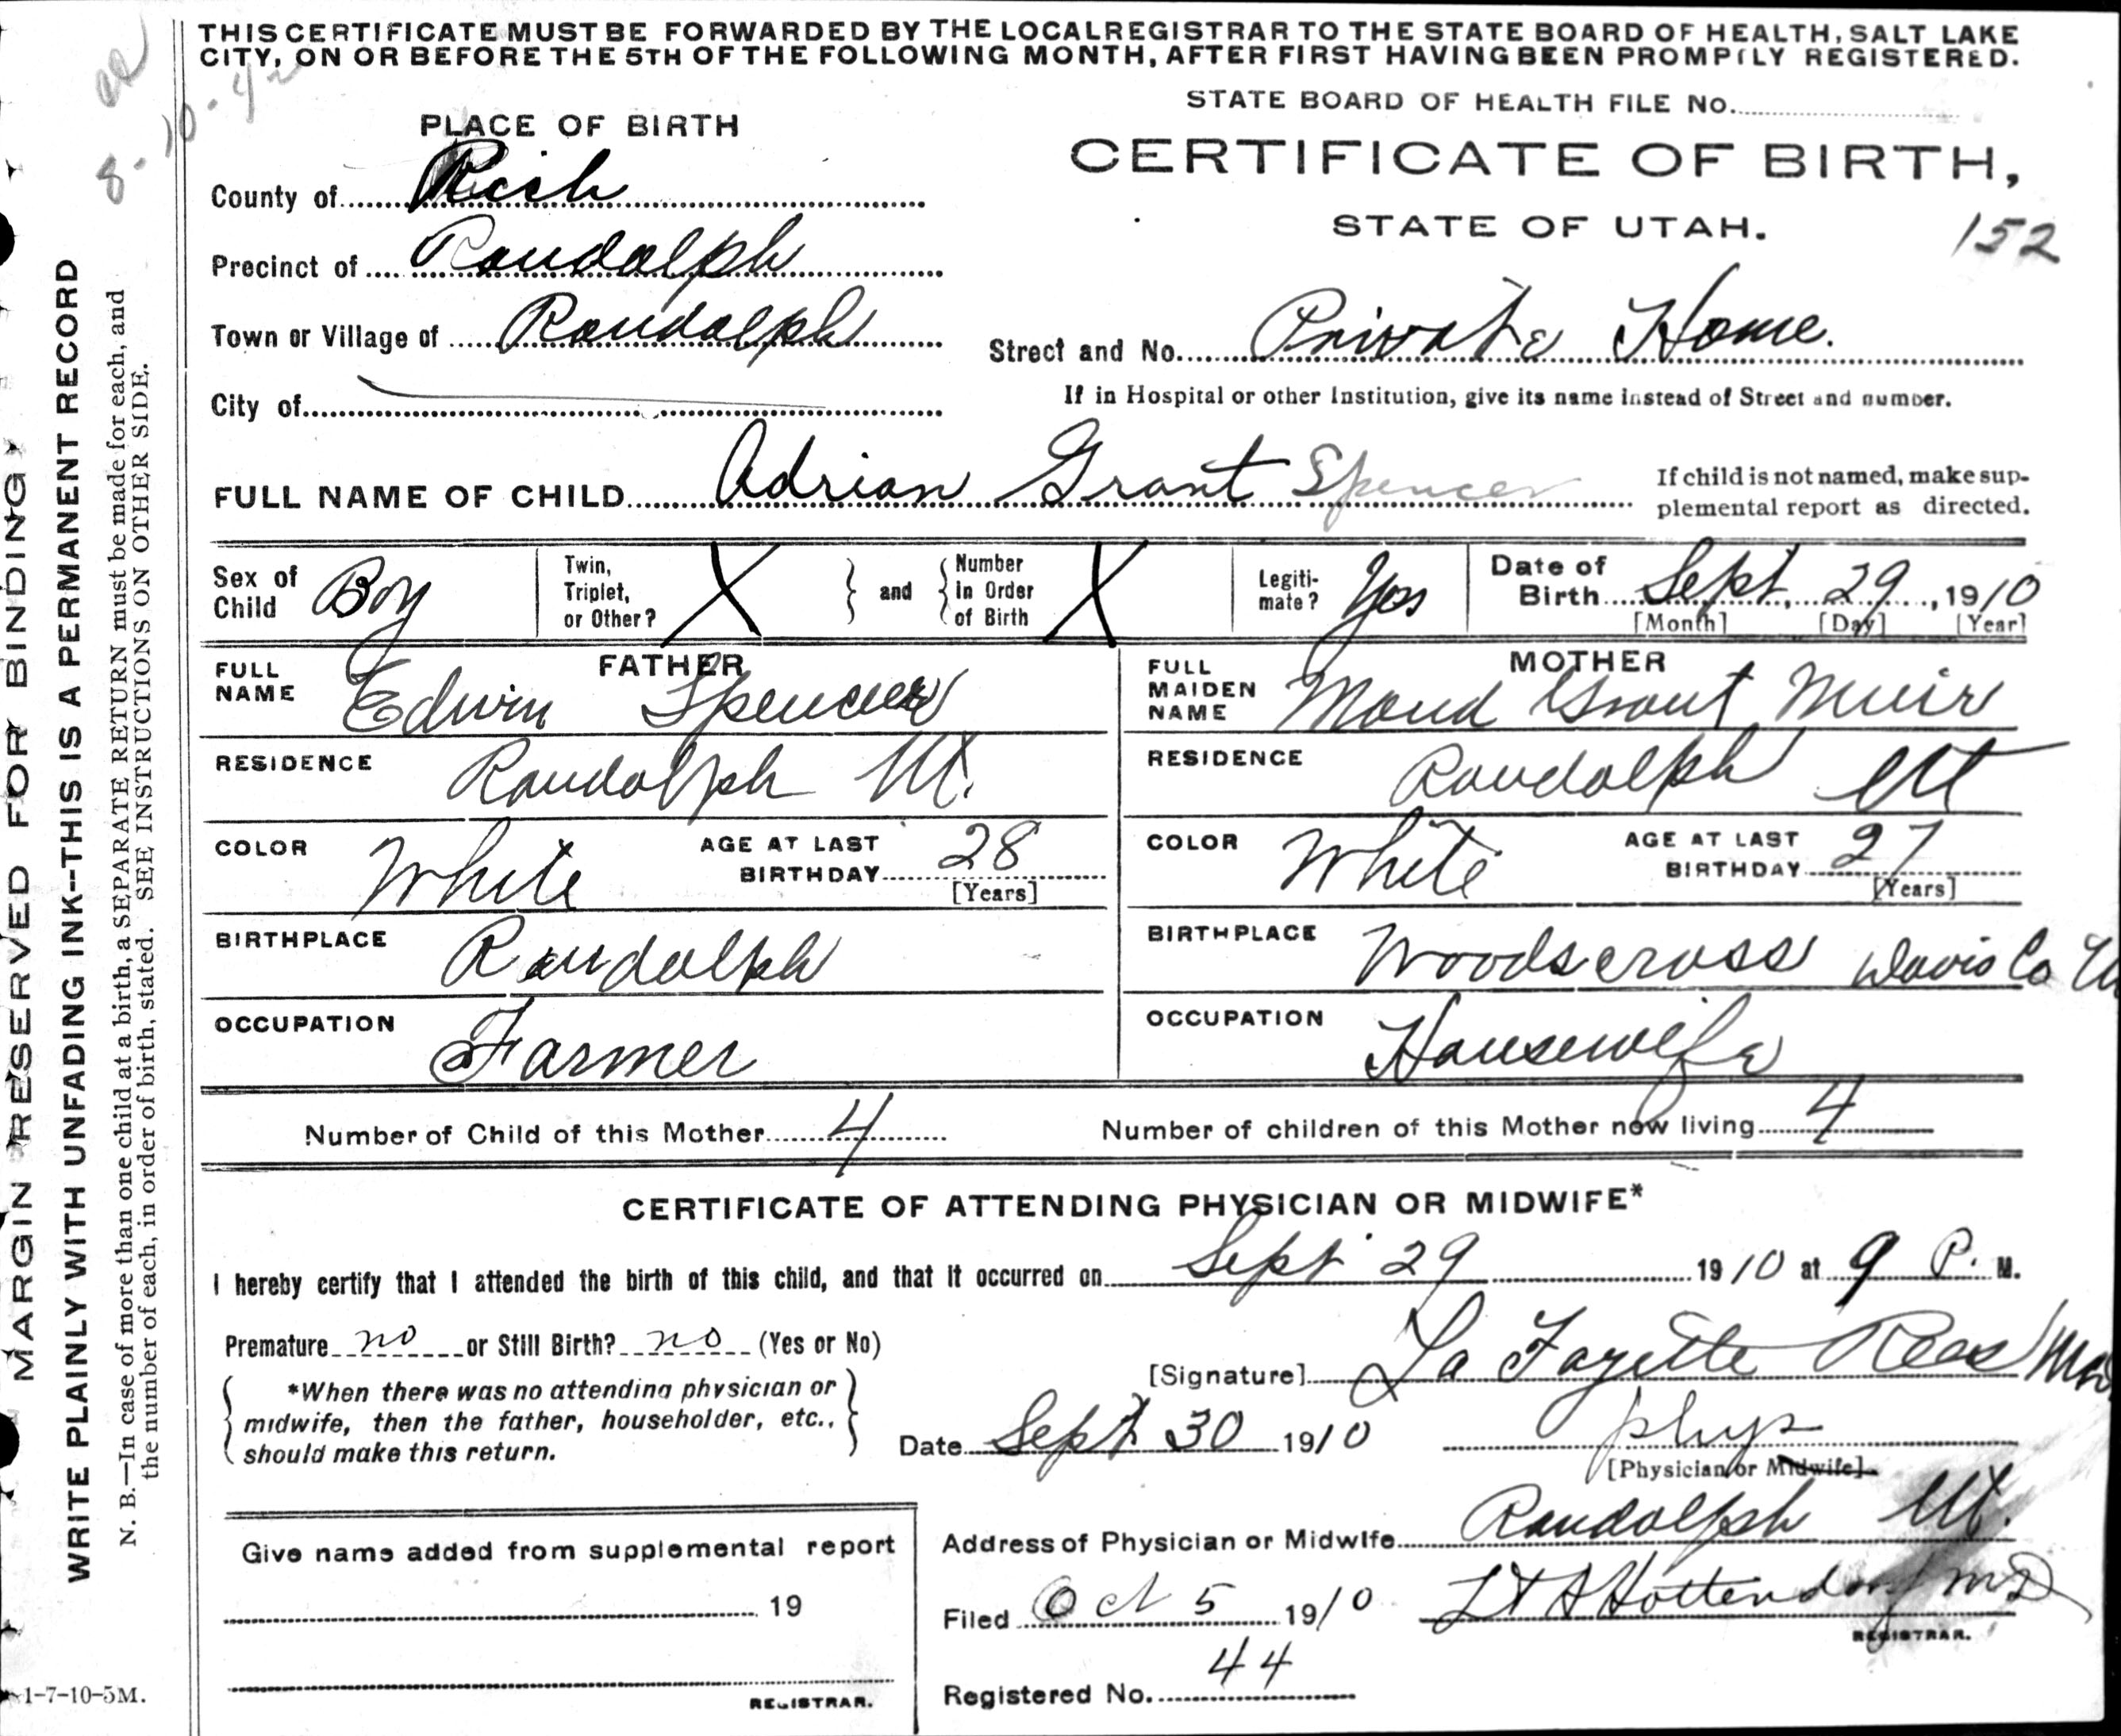 THIS CERTIFICATE MUST BE FORWARDED BY THE LOCAL REGISTRAR TO THE STATE BOARD OF HEALTH, SALT LAKE
CITY, ON OR BEFORE THE 5TH OF THE FOLLOWING MONTH, AFTER FIRST HAVING BEEN PROMPTLY REGISTERED.
8-10-42
STATE BOARD OF HEALTH FILE No.
PLACE OF BIRTH
CERTIFICATE OF BIRTH,
STATE OF UTAH.
152
County of Rich
Precinct of Randolph
Town or Village of Randolph
Street and No. Private Home.
City of
If in Hospital or other Institution, give its name instead of Street and number.
FULL NAME OF CHILD Adrian Grant Spencer
If child is not named, make sup-
plemental report as directed.
Sex of Child Boy
Twin, Triplet, or Other? X
and Number in Order of Birth X
Legiti-mate? Yes
Date of Birth Sept. 29, 1910
[Month] [Day] [Year]
FATHER
FULL NAME Edwin Spencer
RESIDENCE Randolph Ut.
COLOR White AGE AT LAST BIRTHDAY 28
[Years]
BIRTHPLACE Randolph
OCCUPATION Farmer
MOTHER
FULL MAIDEN NAME Maud Grant Muir
RESIDENCE Randolph Ut
COLOR White AGE AT LAST BIRTHDAY 27
[Years]
BIRTHPLACE Woodscross Davis Co
OCCUPATION Housewife
Number of Child of this Mother 4
Number of children of this Mother now living 4
CERTIFICATE OF ATTENDING PHYSICIAN OR MIDWIFE*
I hereby certify that I attended the birth of this child, and that it occurred on Sept 29 1910 at 9 P. M.
Premature no or Still Birth? no (Yes or No)
*When there was no attending physician or
midwife, then the father, householder, etc.,
should make this return.
[Signature] La Fayette Rees
Date Sept 30 1910 phys
[Physician or Midwife]
Address of Physician or Midwife Randolph Ut.
Filed Oct 5 1910 Hottendorf MD
REGISTRAR.
Registered No. 44
Give name added from supplemental report
19
REGISTRAR.
MARGIN RESERVED FOR BINDING
WRITE PLAINLY WITH UNFADING INK--THIS IS A PERMANENT RECORD
N. B.—In case of more than one child at a birth, a SEPARATE RETURN must be made for each, and
the number of each, in order of birth, stated. SEE INSTRUCTIONS ON OTHER SIDE.
1-7-10-5M.